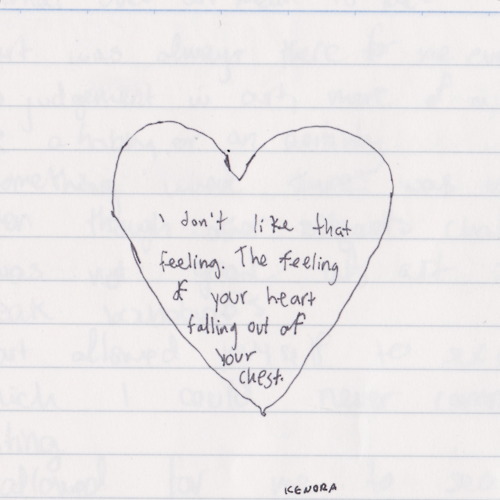 i don't like that
feeling. The feeling
of your heart
falling out of
your
chest.
KENORA